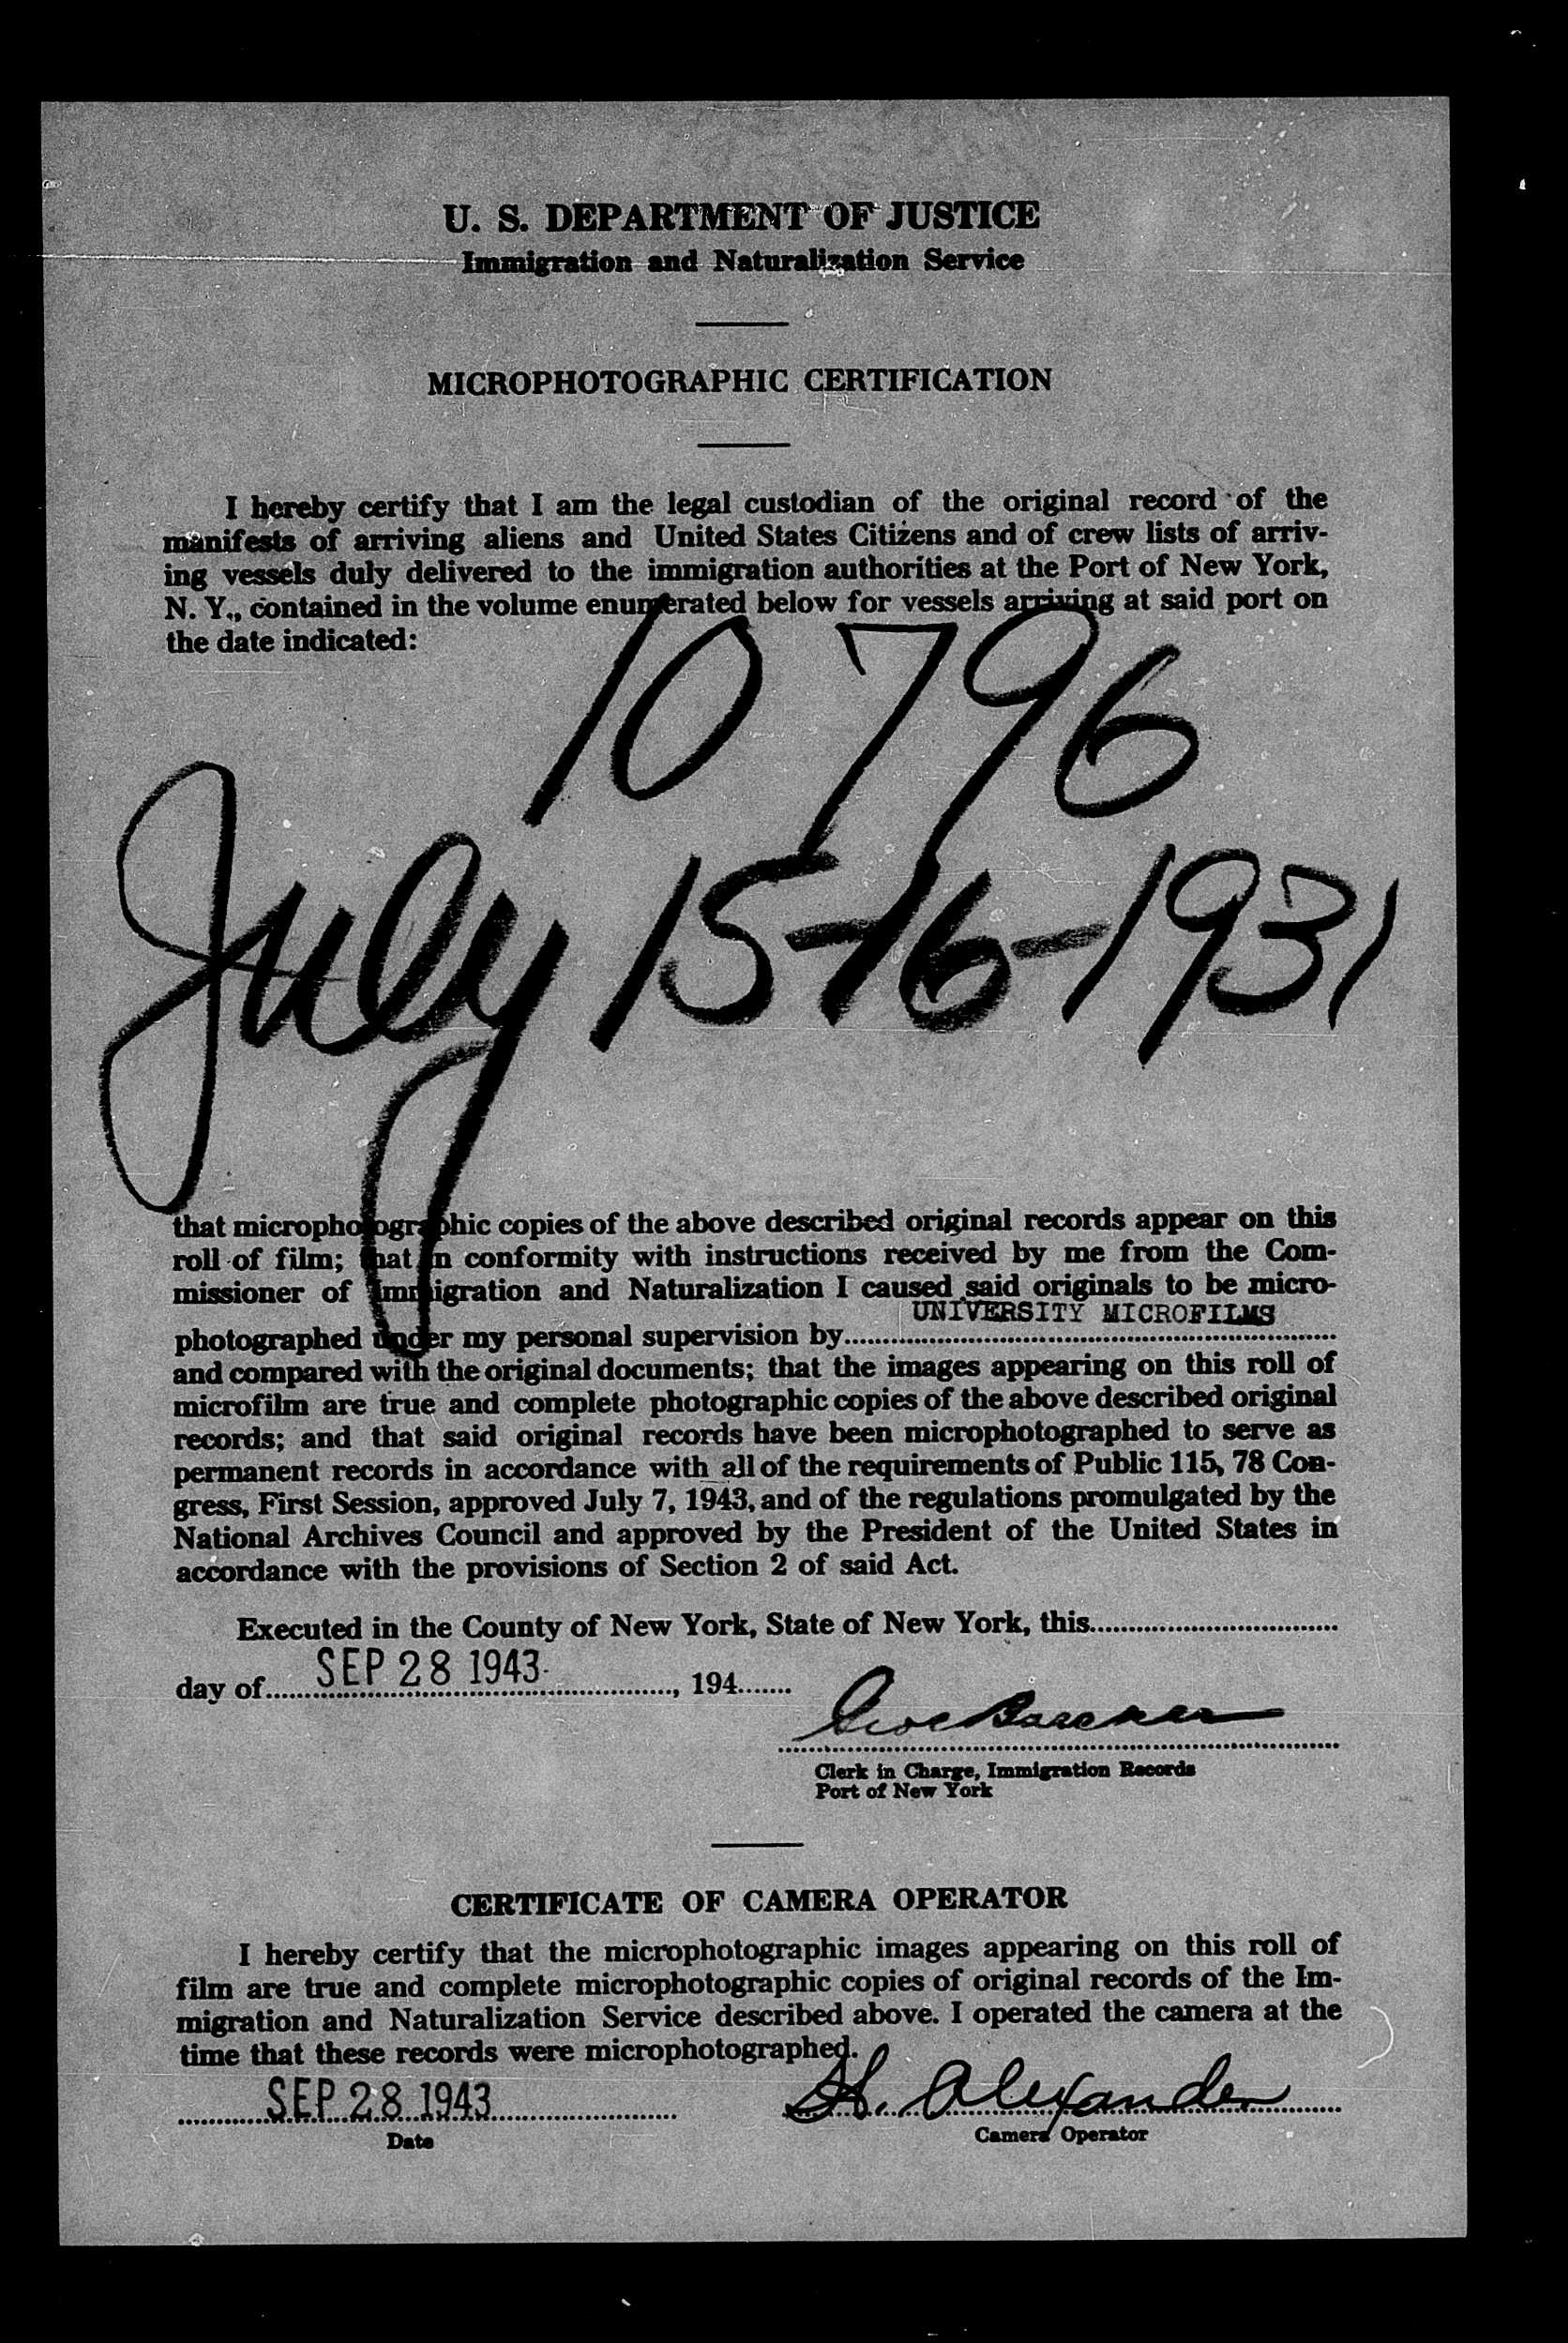 U. S. DEPARTMENT OF JUSTICE
Immigration and Naturalization Service
MICROPHOTOGRAPHIC CERTIFICATION
I hereby certify that I am the legal custodian of the original record of the
manifests of arriving aliens and United States Citizens and of crew lists of arriv-
ing vessels duly delivered to the immigration authorities at the Port of New York,
N. Y., contained in the volume enumerated below for vessels arriving at said port on
the date indicated:
10796
July 15-16-1931
that microphotographic copies of the above described original records appear on this
roll of film; that in conformity with instructions received by me from the Com-
missioner of Immigration and Naturalization I caused said originals to be micro-
UNIVERSITY MICROFILMS
photographed under my personal supervision by
and compared with the original documents; that the images appearing on this roll of
microfilm are true and complete photographic copies of the above described original
records; and that said original records have been microphotographed to serve as
permanent records in accordance with all of the requirements of Public 115, 78 Con-
gress, First Session, approved July 7, 1943, and of the regulations promulgated by the
National Archives Council and approved by the President of the United States in
accordance with the provisions of Section 2 of said Act.
Executed in the County of New York, State of New York, this
day of SEP 28 1943, 194
Clerk in Charge, Immigration Records
Port of New York
CERTIFICATE OF CAMERA OPERATOR
I hereby certify that the microphotographic images appearing on this roll of
film are true and complete microphotographic copies of original records of the Im-
migration and Naturalization Service described above. I operated the camera at the
time that these records were microphotographed.
SEP 28 1943 H. Alexander
Date Camera Operator